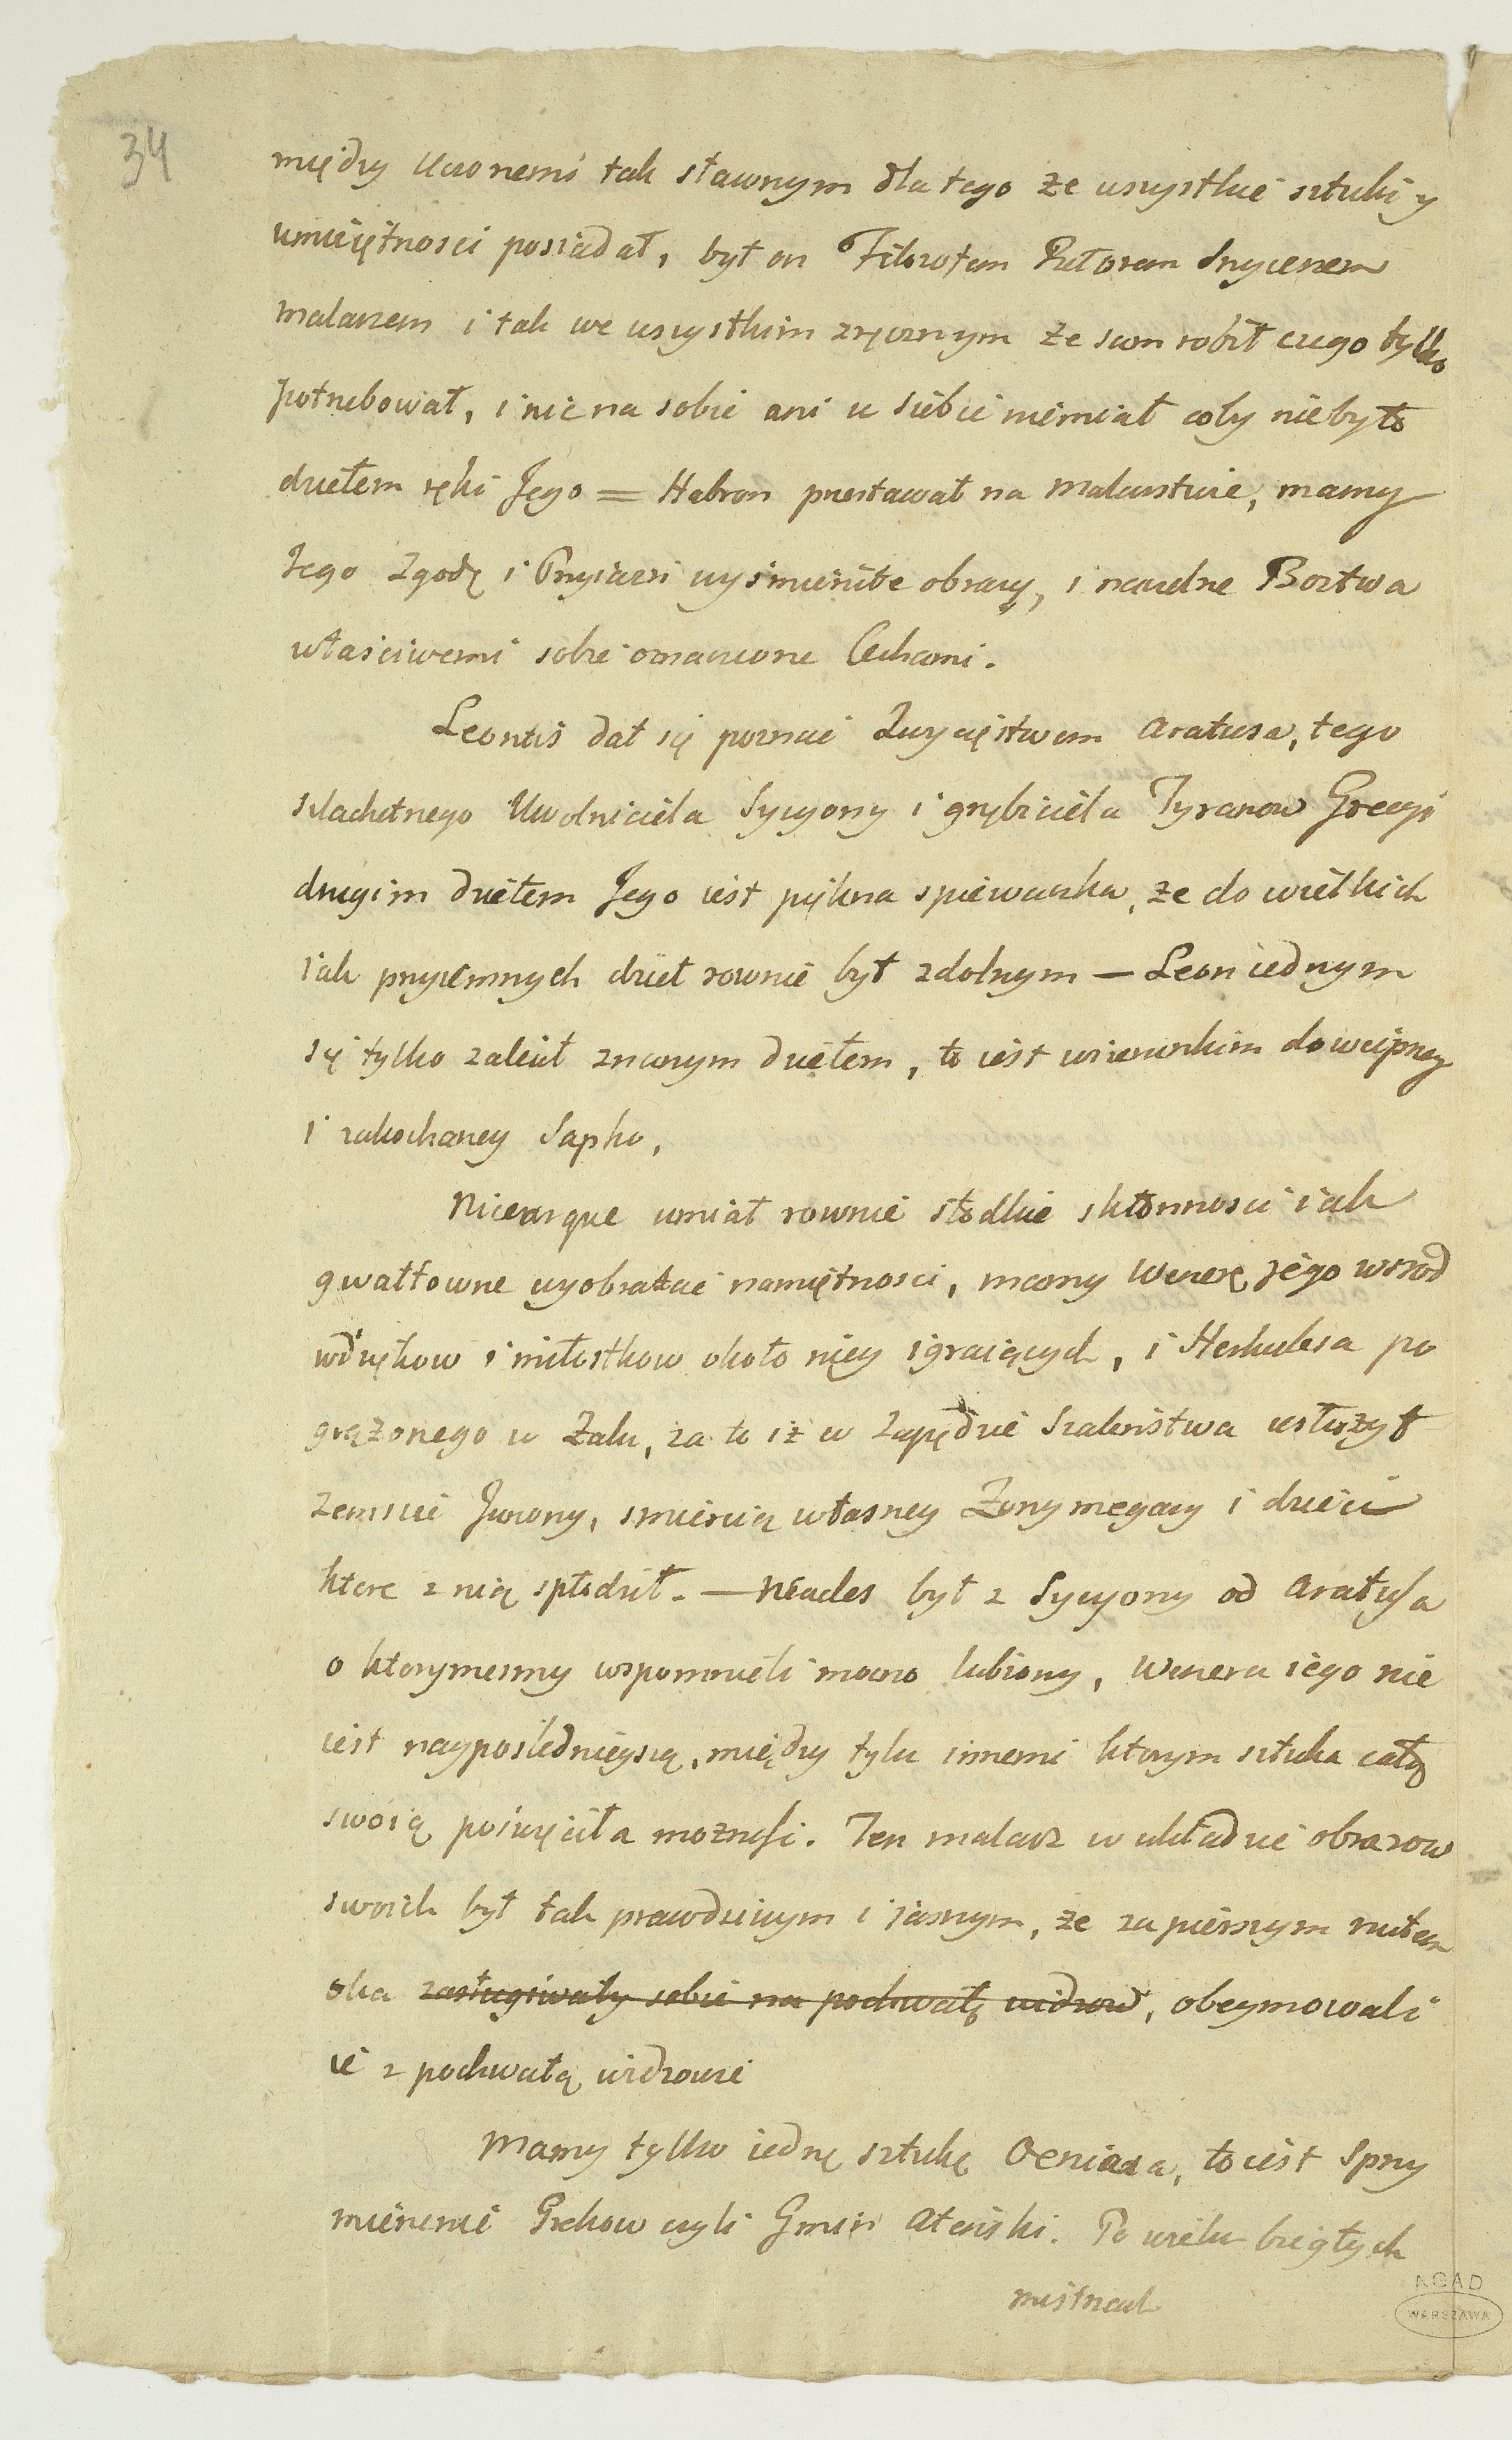 34
między Uczonemi tak sławnym dla tego że wszystkie sztuki y
umieiętnosci posiadał, był on Filozofem Retorem Snycerzem
malarzem i tak we wszystkim zręcznym że sam robił czego tylko
potrzebował, i nic na sobie ani u siebie niemiał coby niebyło
dziełem ręki Jego = Habron przestawał na malarstwie, mamy
Jego Zgodę i Przyiazń wyśmienite obrazy, i rozmaite Boztwa
właściwemi sobie oznaczone Cechami.
Leontis dał się poznać Zwycięstwem Aratusa, tego
szlachetnego Uwolniciela Sycyony i gnębiciela Tyranow Grecyi
drugim dziełem Jego iest piękna spiewaczka, że do wielkich
iak przyiemnych dzieł rownie był zdolnym — Leon iednym
się tylko zalecił znanym dziełem, to iest wizerunkiem dowcipney
i zakochaney Sapho,
Nicearque umiał rownie słodkie skłonnosci iak
gwałtowne wyobrażać namiętnosci, mamy Wenerę Jego wsrod
wdzięków i miłostkow około niey igraiących, i Herkulesa po
grążonego w Żalu, za to iż w Zapędzie Szaleństwa usłużył
zemscie Junony, smiercią własney Żony megary i dzieci
ktore z nią spłodził. — Néacles był z Sycyony od Aratusa
o ktorymesmy wspomnieli mocno lubiony, Wenera iego nie
iest naypoślednieyszą, między tylu innemi ktorym sztuka całą
swoią poświęciła możność. Ten malarz w układzie obrazow
swoich był tak prawdziwym i iasnym, że za pierwszym rzutem
oka zasługiwały sobie na pochwałę widzow, obeymowali
ie z pochwałą widzowie
Mamy tylko iednę sztukę Oeniasa, to iest Sprzy
mierzenie Grekow czyli Gmin Ateński. Po wielu biegłych
mistrzach
AGAD
WARSZAWA